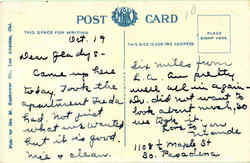 POST CARD
THIS SPACE FOR WRITING
THIS SIDE IS FOR THE ADDRESS
PLACE
STAMP HERE
Oct. 19
Dear Gladys -
Came out here
today. Took the
apartment Leda
had. Not just
what we wanted
but it is good
size & clean.
Six miles from
L. A. Am pretty
well all in again
Dr. did not want to
look about much, so
we took it.
Love to you
friends
1108 ½ Maple St
So. Pasadena